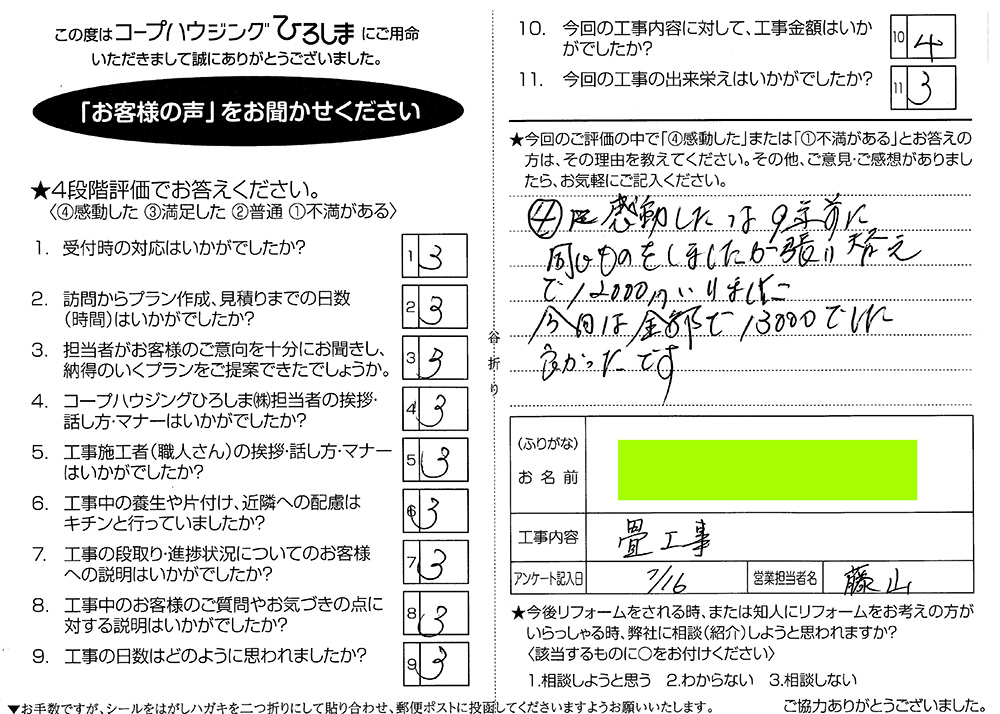 この度はコープハウジングひろしまにご用命
いただきまして誠にありがとうございました。
「お客様の声」をお聞かせください
★4段階評価でお答えください。
〈④感動した ③満足した ②普通 ①不満がある〉
1. 受付時の対応はいかがでしたか?
1 3
2. 訪問からプラン作成、見積りまでの日数
（時間）はいかがでしたか?
2 3
3. 担当者がお客様のご意向を十分にお聞きし、
納得のいくプランをご提案できたでしょうか。
3 3
4. コープハウジングひろしま㈱担当者の挨拶・
話し方・マナーはいかがでしたか?
4 3
5. 工事施工者（職人さん）の挨拶・話し方・マナー
はいかがでしたか?
5 3
6. 工事中の養生や片付け、近隣への配慮は
キチンと行っていましたか?
6 3
7. 工事の段取り・進捗状況についてのお客様
への説明はいかがでしたか?
7 3
8. 工事中のお客様のご質問やお気づきの点に
対する説明はいかがでしたか?
8 3
9. 工事の日数はどのように思われましたか?
9 3
▼お手数ですが、シールをはがしハガキを二つ折りにして貼り合わせ、郵便ポストに投函してくださいますようお願いいたします。
谷折り
10. 今回の工事内容に対して、工事金額はいか
がでしたか?
10 4
11. 今回の工事の出来栄えはいかがでしたか?
11 3
★今回のご評価の中で「④感動した」または「①不満がある」とお答えの
方は、その理由を教えてください。その他、ご意見・ご感想がありまし
たら、お気軽にご記入ください。
④に感動したのは9年前に
同じものをしましたが張り替え
で12000円いりました
今回は全部で13000でした
良かったです
（ふりがな）
お名前
工事内容 畳工事
アンケート記入日 7/16 営業担当者名 藤山
★今後リフォームをされる時、または知人にリフォームをお考えの方が
いらっしゃる時、弊社に相談（紹介）しようと思われますか?
〈該当するものに○をお付けください〉
1.相談しようと思う 2.わからない 3.相談しない
ご協力ありがとうございました。